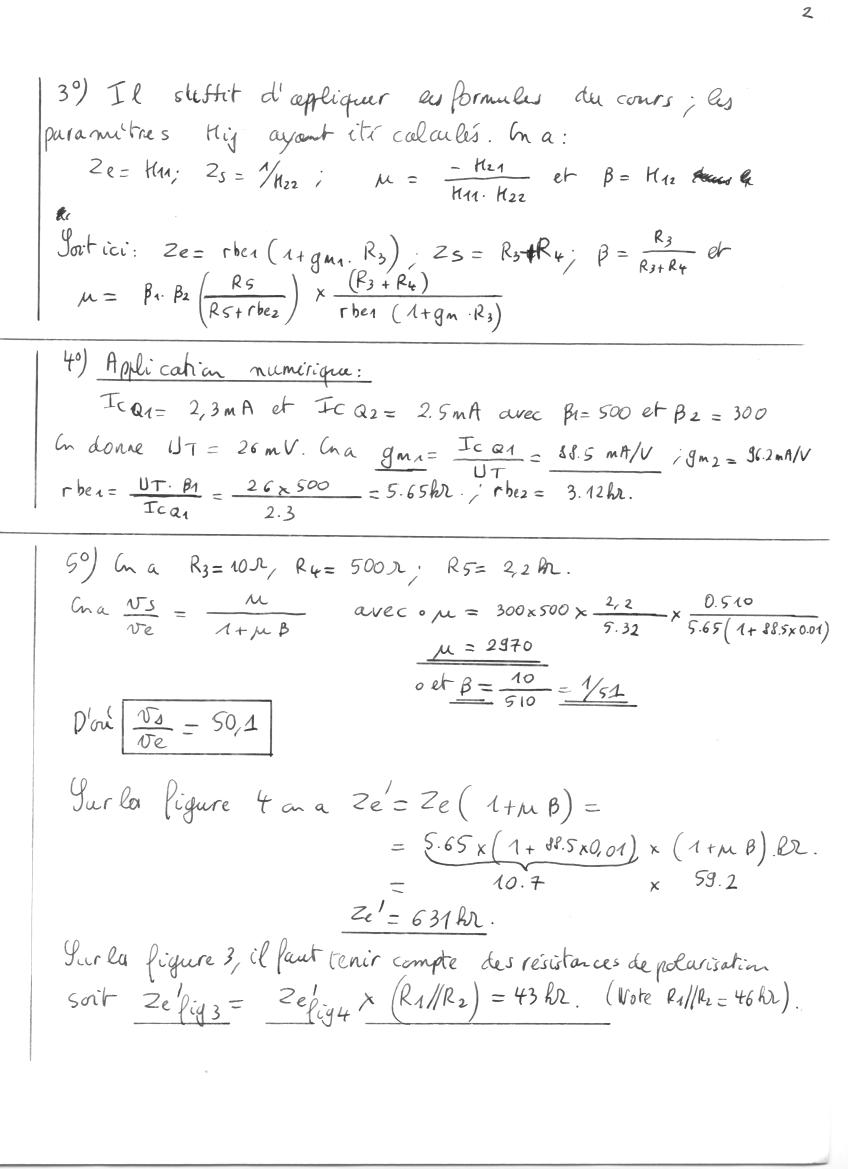 2
3°) Il suffit d'appliquer les formules du cours ; les
paramètres Hij ayant été calculés. On a :
Ze = H11 ; Zs = 1/H22 ; μ = - H21 / H11 . H22 et β = H12
Soit ici : Ze = rbe1 (1 + gm1 . R3) ; Zs = R3+R4 ; β = R3 / R3+R4 et
μ = β1 . β2 (R5 / R5 + rbe2) × (R3 + R4) / rbe1 (1 + gm . R3)
4°) Application numérique :
IcQ1 = 2,3 mA et IcQ2 = 2.5 mA avec β1 = 500 et β2 = 300
On donne UT = 26 mV. On a gm1 = IcQ1 / UT = 88.5 mA/V ; gm2 = 96.2 mA/V
rbe1 = UT . β1 / IcQ1 = 26 × 500 / 2.3 = 5.65 kΩ. ; rbe2 = 3.12 kΩ.
5°) On a R3 = 10 Ω, R4 = 500 Ω ; R5 = 2,2 kΩ.
On a vs / ve = μ / 1 + μ β avec o μ = 300 × 500 × 2,2 / 5.32 × 0.510 / 5.65 (1 + 88.5 × 0.01)
μ = 2970
o et β = 10 / 510 = 1/51
D'où vs / ve = 50,1
Sur la figure 4 on a Ze' = Ze (1 + μ β) =
= 5.65 × (1 + 88.5 × 0,01) × (1 + μ β) . kΩ.
= 10.7 × 59.2
Ze' = 631 kΩ.
Sur la figure 3, il faut tenir compte des résistances de polarisation
soit Ze' fig 3 = Ze' fig 4 × (R1//R2) = 43 kΩ. (Note R1//R2 = 46 kΩ).